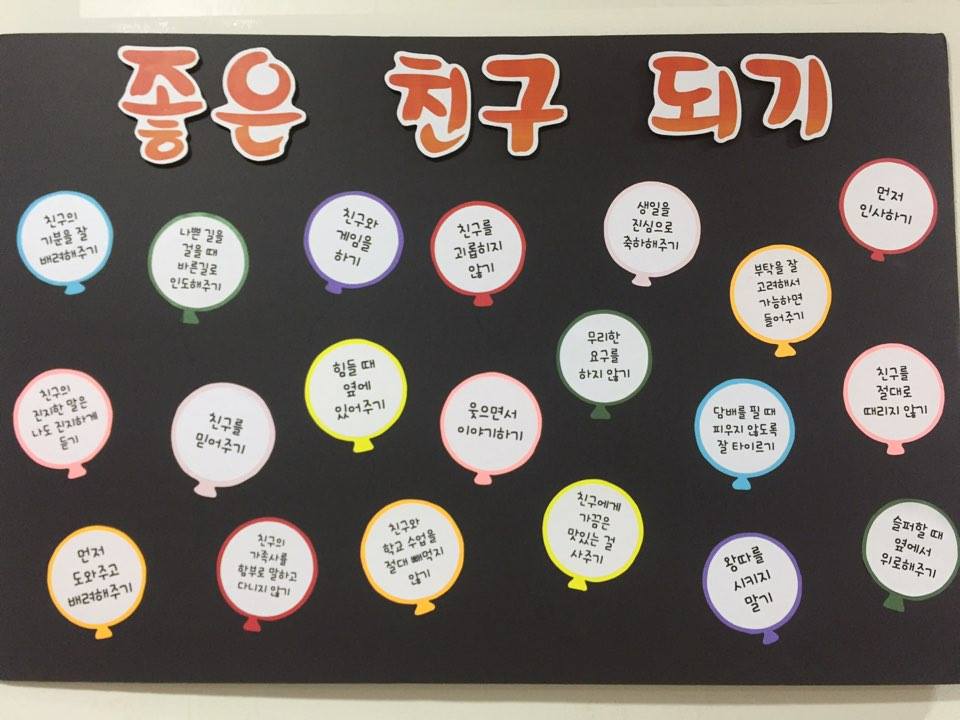 좋은 친구 되기
친구의
기분을 잘
배려해주기
나쁜 길을
걸을 때
바른길로
인도해주기
친구와
게임을
하기
친구를
괴롭히지
않기
생일을
진심으로
축하해주기
부탁을 잘
고려해서
가능하면
들어주기
먼저
인사하기
친구의
진지한 말은
나도 진지하게
듣기
친구를
믿어주기
힘들 때
옆에
있어주기
웃으면서
이야기하기
무리한
요구를
하지 않기
담배를 필 때
피우지 않도록
잘 타이르기
친구를
절대로
때리지 않기
먼저
도와주고
배려해주기
친구의
가족사를
함부로 말하고
다니지 않기
친구와
학교 수업을
절대 빼먹지
않기
친구에게
가끔은
맛있는 걸
사주기
왕따를
시키지
말기
슬퍼할 때
옆에서
위로해주기